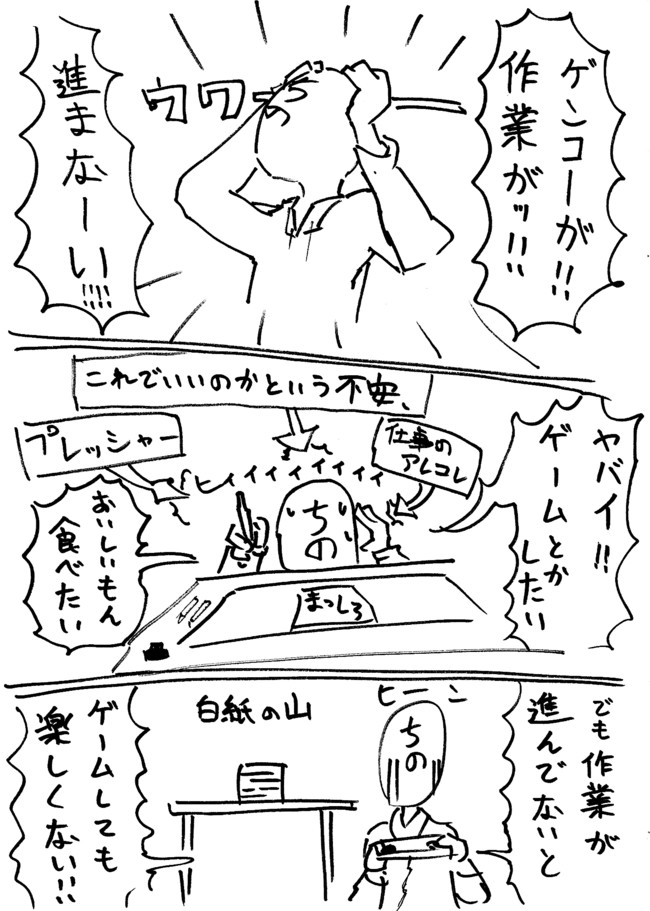 ゲンコーが!!
作業がッ!!!
ウワーー
ちの
進まなーい!!!!
これでいいのかという不安、
ヤバイ!!
ゲームとか
したい
仕事の
アレコレ
プレッシャー
ヒィィィィィィィ
ちの
おいしいもん
食べたい
まっしろ
でも作業が
進んでないと
ヒーン
ちの
白紙の山
ゲームしても
楽しくない!!!